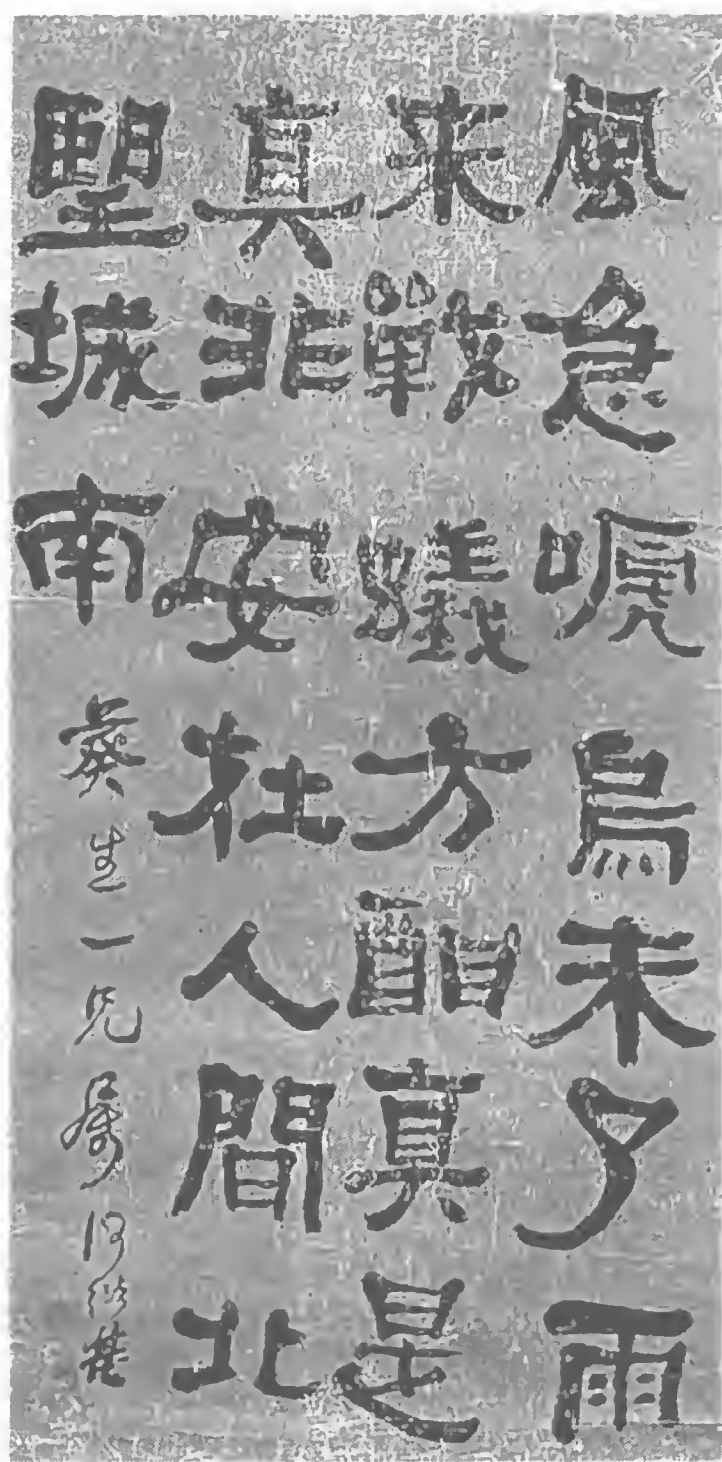 風急㗋烏未了雨
來戰蟻方酣真是
真非安在人間北
望城南
彝生一兄屬何紹基